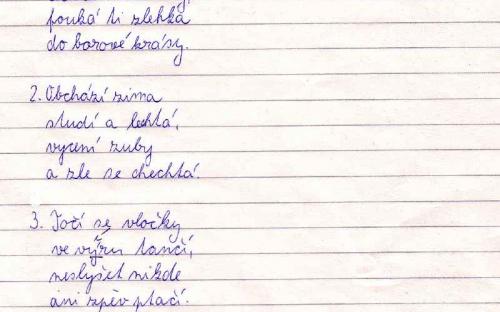 fouká ti zlehka
do barové krásy.
2. Obchází zima
studí a lechtá,
vycení zuby
a zle se chechtá.
3. Točí se vločky
ve výru tančí,
neslyšet nikde
ani zpěv ptačí.